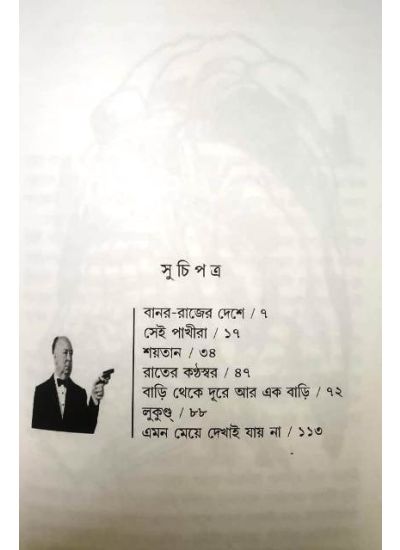 সূচিপত্র
বানর-রাজের দেশে / ৭
সেই পাখীরা / ১৭
শয়তান / ৩৪
রাতের কণ্ঠস্বর / ৪৭
বাড়ি থেকে দূরে আর এক বাড়ি / ৭২
লুকুণ্ডু / ৮৮
এমন মেয়ে দেখাই যায় না / ১১৩